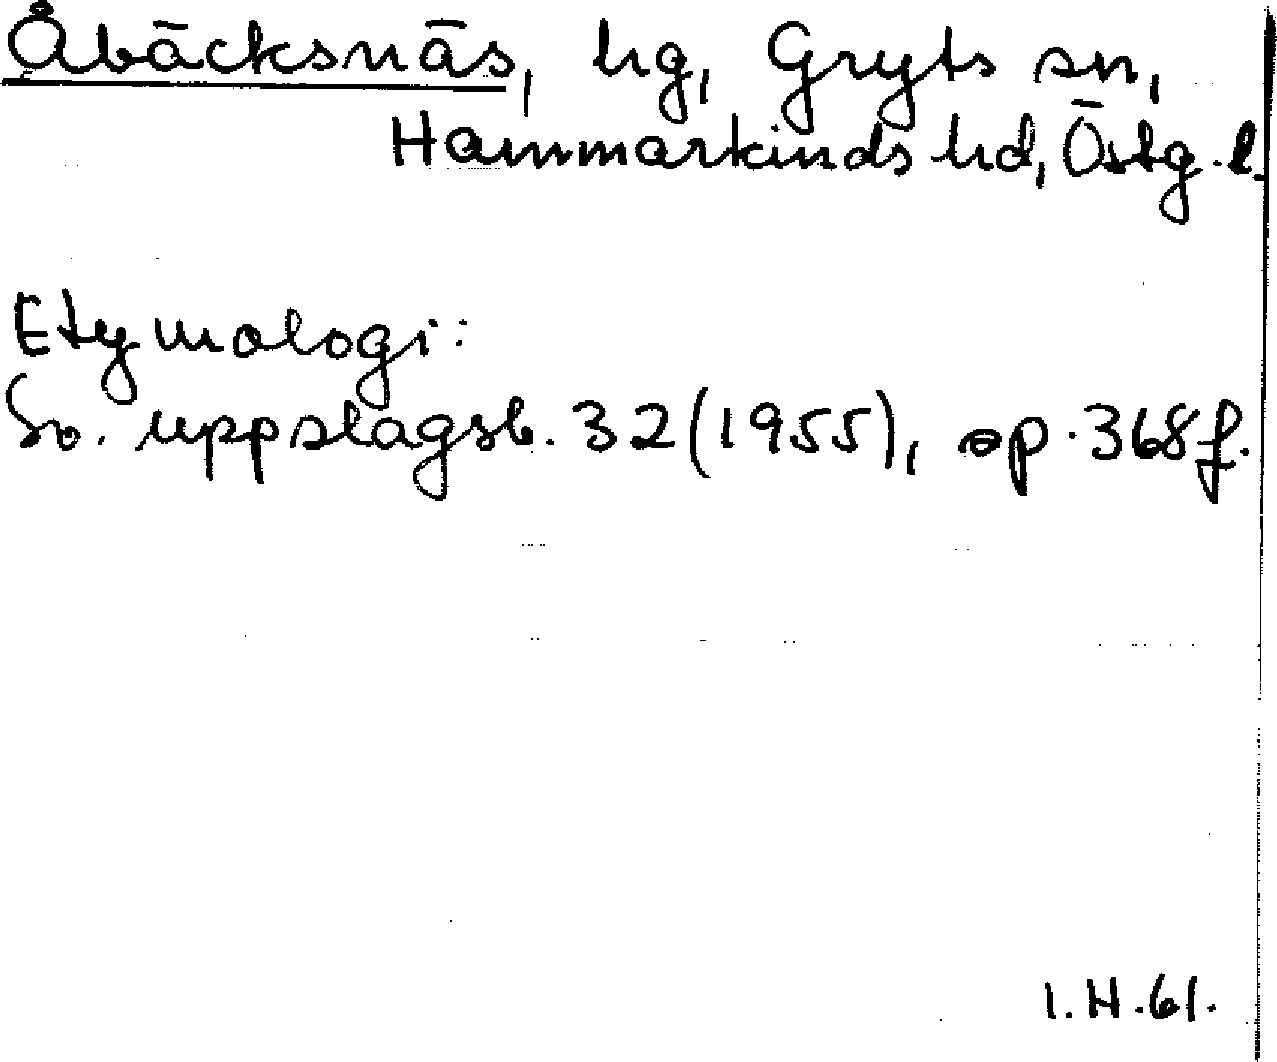 Åbäcksnäs, hg, Gryts sn,
Hammarkinds hd, Östg. l.
Etymologi:
Sv. uppslagsb. 32 (1955), sp. 368 f.
I. H. 61.